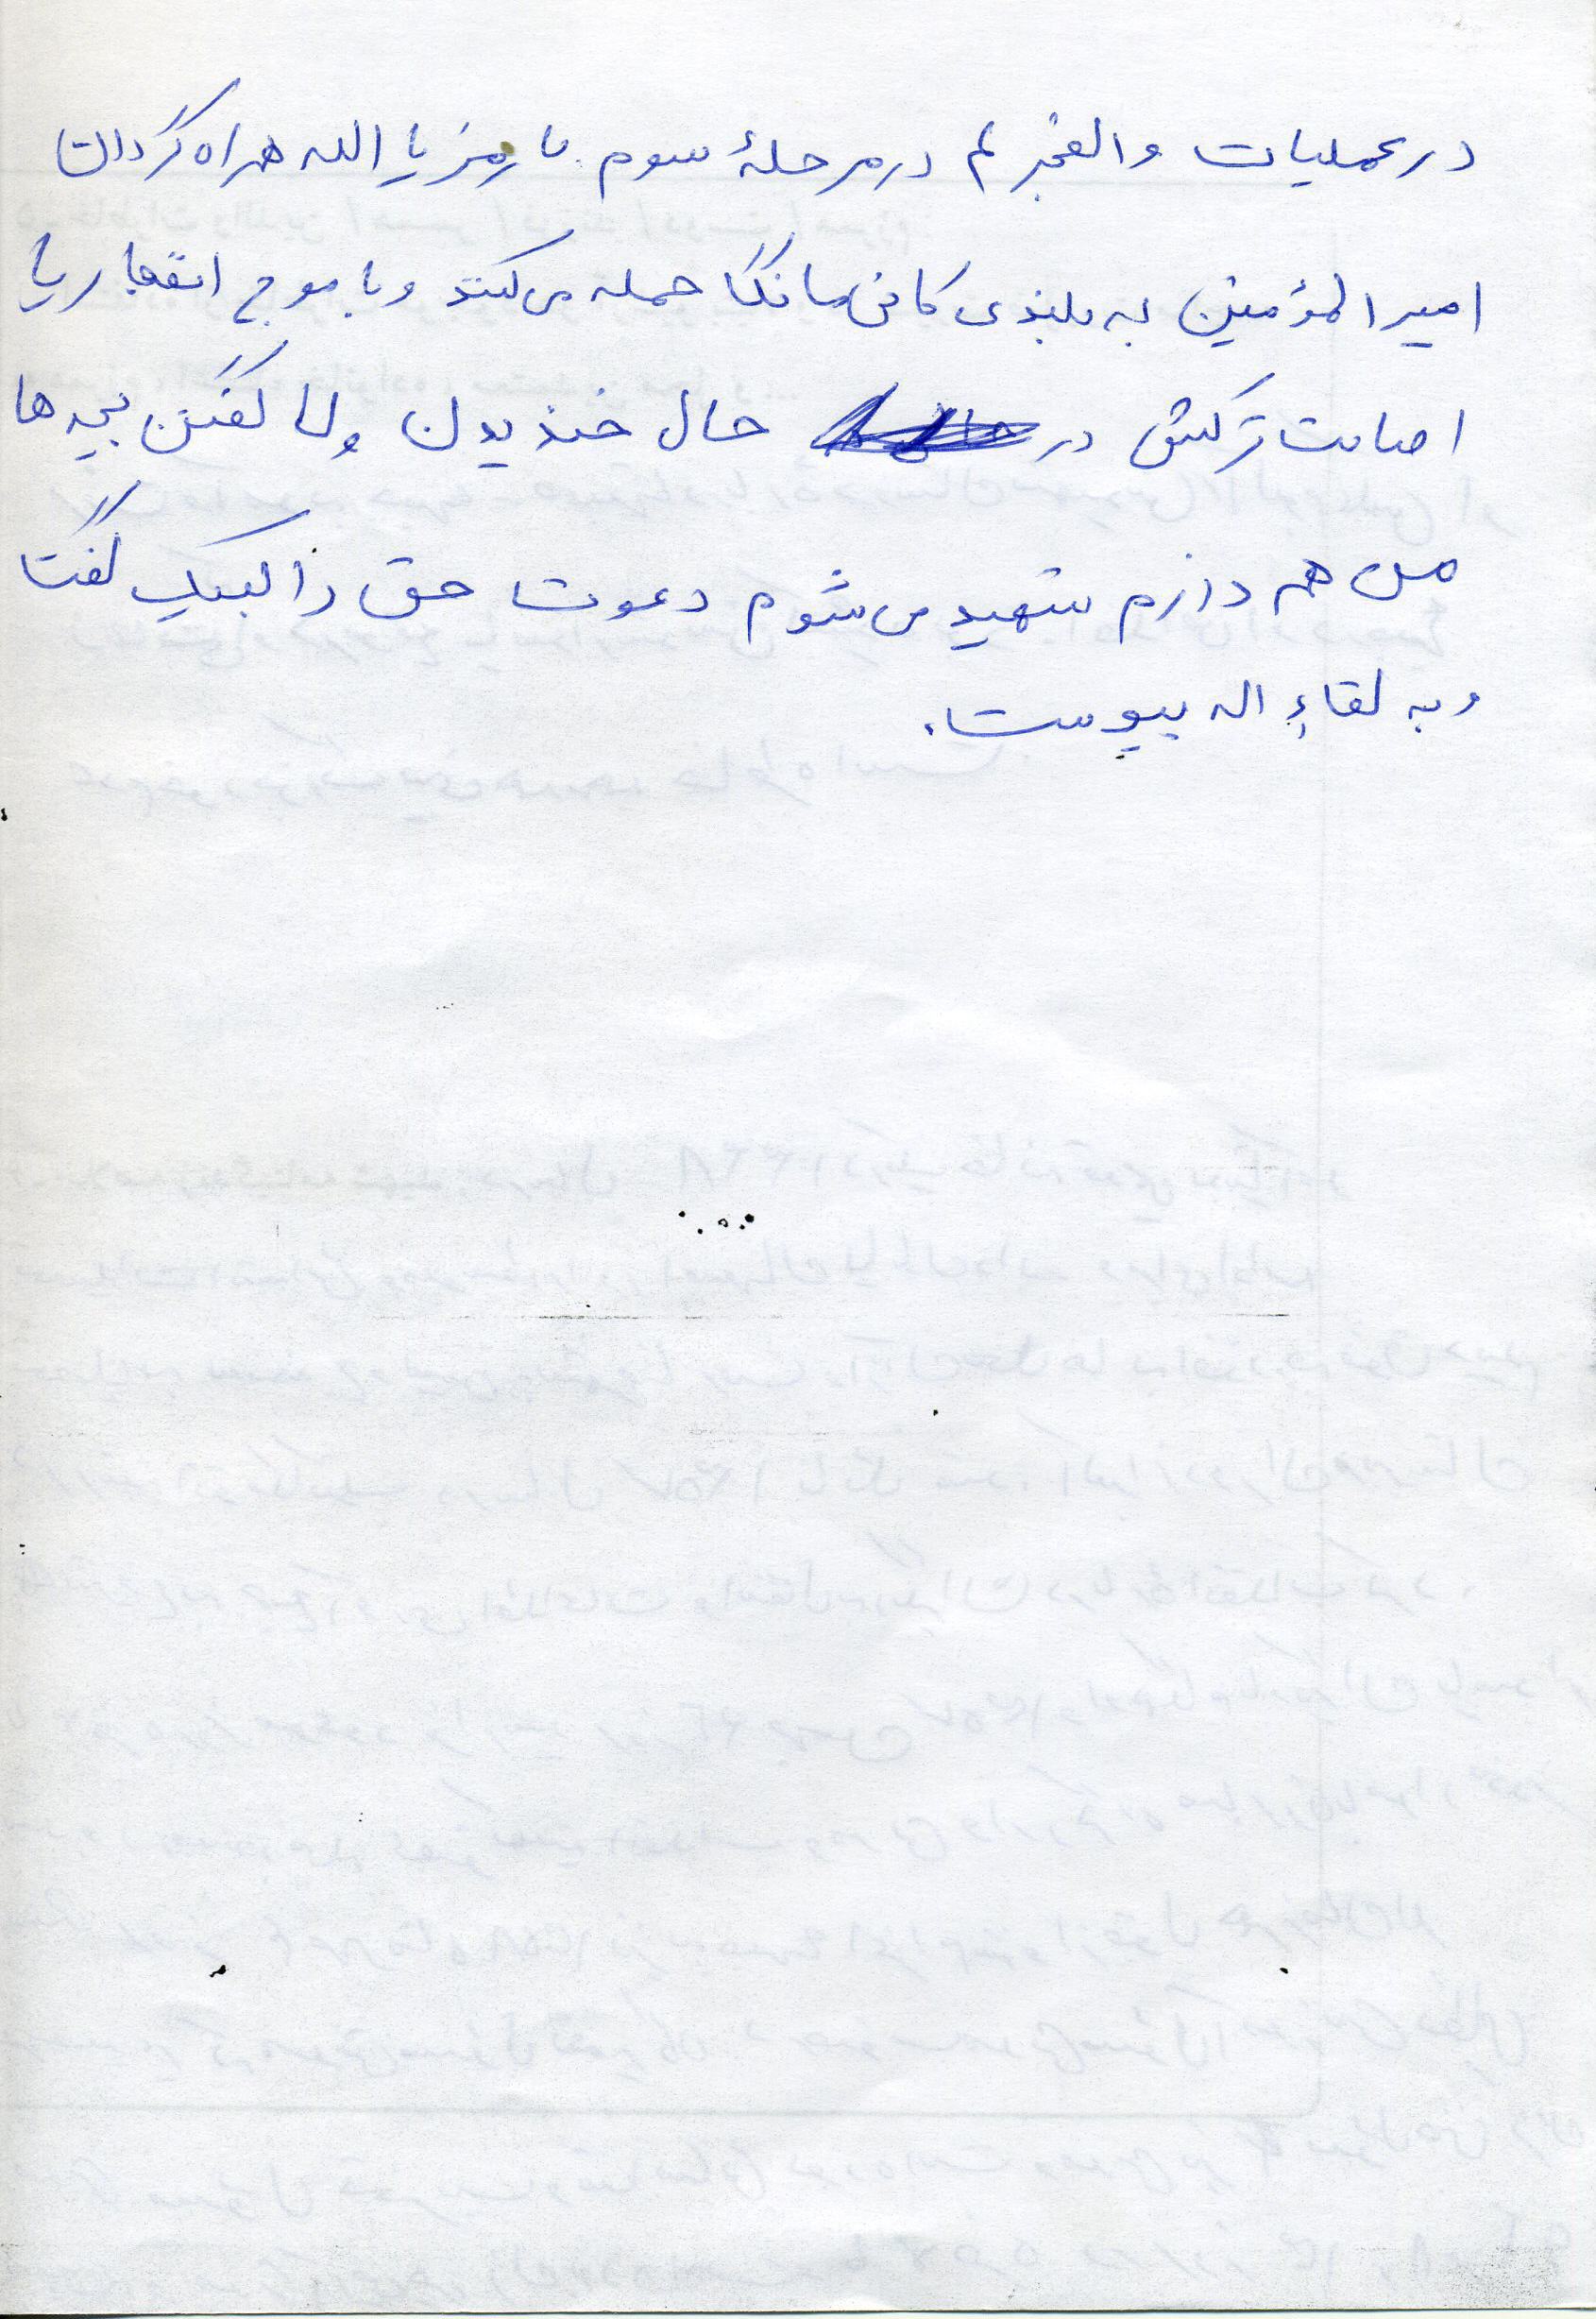 در عملیات والفجر ۴ در مرحلهٔ سوم با رمز یا الله همراه گردان
امیرالمؤمنین به بلندی کانی مانگا حمله می‌کنند و با موج انفجار یا
اصابت ترکش در حال خندیدن و با گفتن بچه ها
من هم دارم شهید می شوم دعوت حق را لبیک گفت
و به لقاءِ اله پیوست.